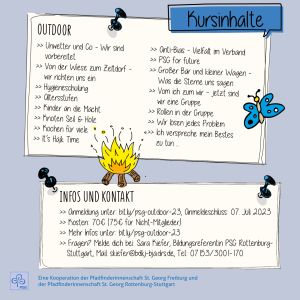 Kursinhalte
OUTDOOR
>> Unwetter und Co - Wir sind
vorbereitet
>> Von der Wiese zum Zeltdorf -
wir richten uns ein
>> Hygieneschulung
>> Altersstufen
>> Kinder an die Macht
>> Knoten Seil & Hole
>> Kochen für viele
>> It's Hajk Time
>> Anti-Bias - Vielfalt im Verband
>> PSG for future
>> Großer Bär und kleiner Wagen -
Was die Sterne uns sagen
>> Vom ich zum wir - jetzt sind
wir eine Gruppe
>> Rollen in der Gruppe
>> Wir lösen jedes Problem
>> Ich verspreche mein Bestes
zu tun ...
INFOS UND KONTAKT
>> Anmeldung unter: bit.ly/psg-outdoor-23, Anmeldeschluss: 07. Juli 2023
>> Kosten: 70€ (75€ für Nicht-Mitglieder)
>> Mehr Infos unter: bit.ly/psg-outdoor-23
>> Fragen? Melde dich bei Sara Kiefer, Bildungsreferentin PSG Rottenburg-
Stuttgart, Mail: skiefer@bdkj-bja.drs.de, Tel: 07153/3001-170
Eine Kooperation der Pfadfinderinnenschaft St. Georg Freiburg und
der Pfadfinderinnenschaft St. Georg Rottenburg-Stuttgart